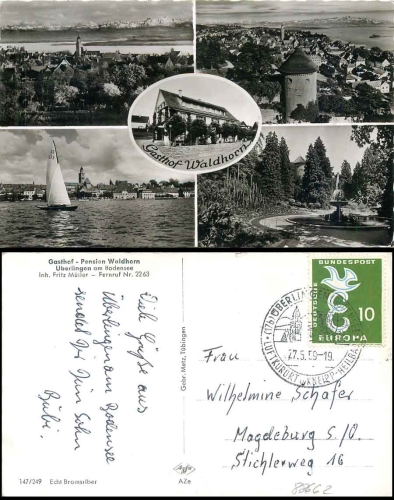 Gasthof Waldhorn
Gasthof - Pension Waldhorn
Überlingen am Bodensee
Inh. Fritz Müller - Fernruf Nr. 2263
Viele Grüße aus
Überlingen am Bodensee
sendet Dir Dein Sohn
Bubi.
147/249 Echt Bromsilber
Gebr. Metz, Tübingen
Agfa
AZe
DEUTSCHE BUNDESPOST
10
EUROPA
ÜBERLINGEN
27.5.59-19
Frau
Wilhelmine Schäfer
Magdeburg S./O.
Stichlerweg 16